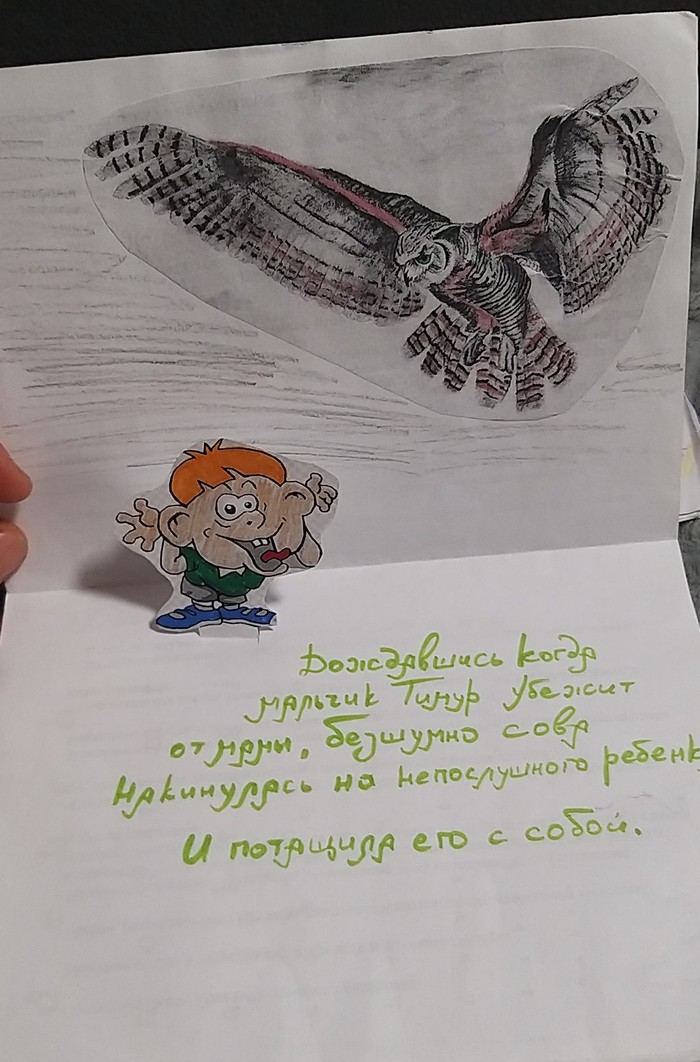 Дождавшись когда
мальчик Тимур убежит
от мамы, безшумно сова
накинулась на непослушного ребенк
И потащила его с собой.